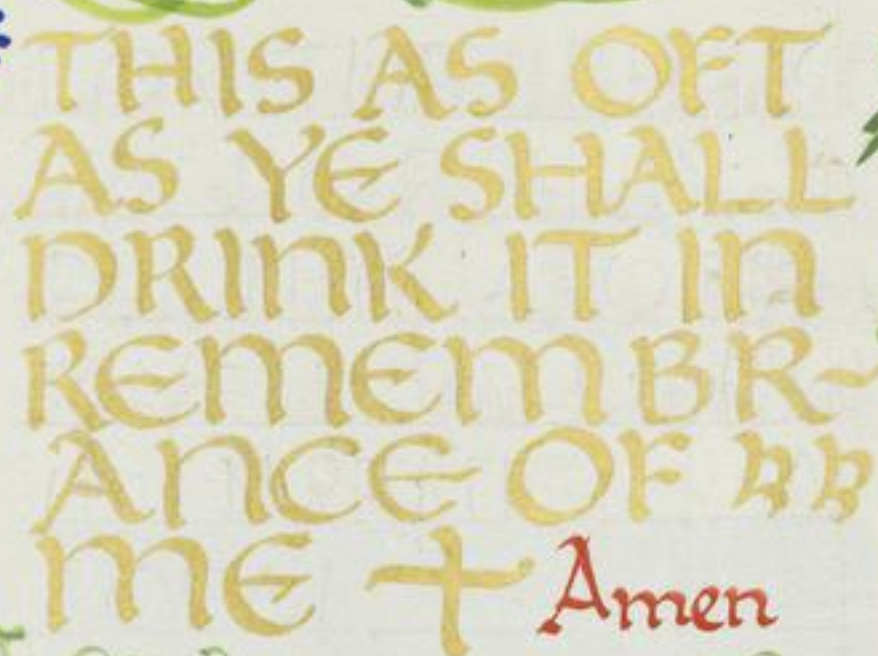 THIS AS OFT
AS YE SHALL
DRINK IT IN
REMEMBR-
ANCE OF
ME + Amen